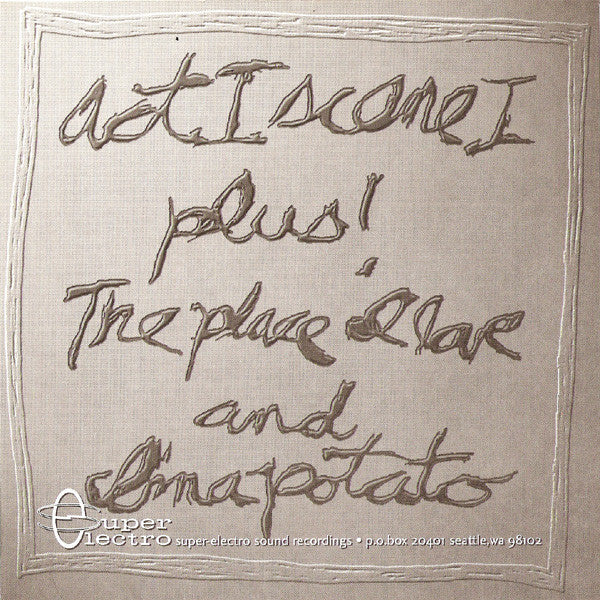 act I scene I
plus!
The place I love
and
I'm a potato
Super
Electro
super-electro sound recordings • p.o.box 20401 seattle,wa 98102